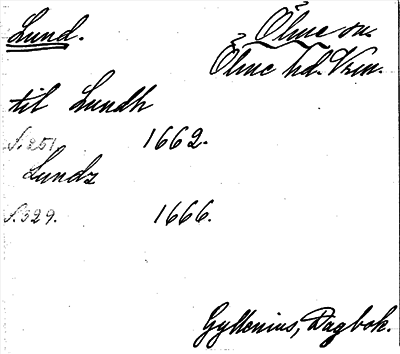 Lund.
Ölme sn.
Ölme hd. Vrm.
til Lundh
S. 251. 1662.
Lundz
S. 329. 1666.
Gyllenius, Dagbok.